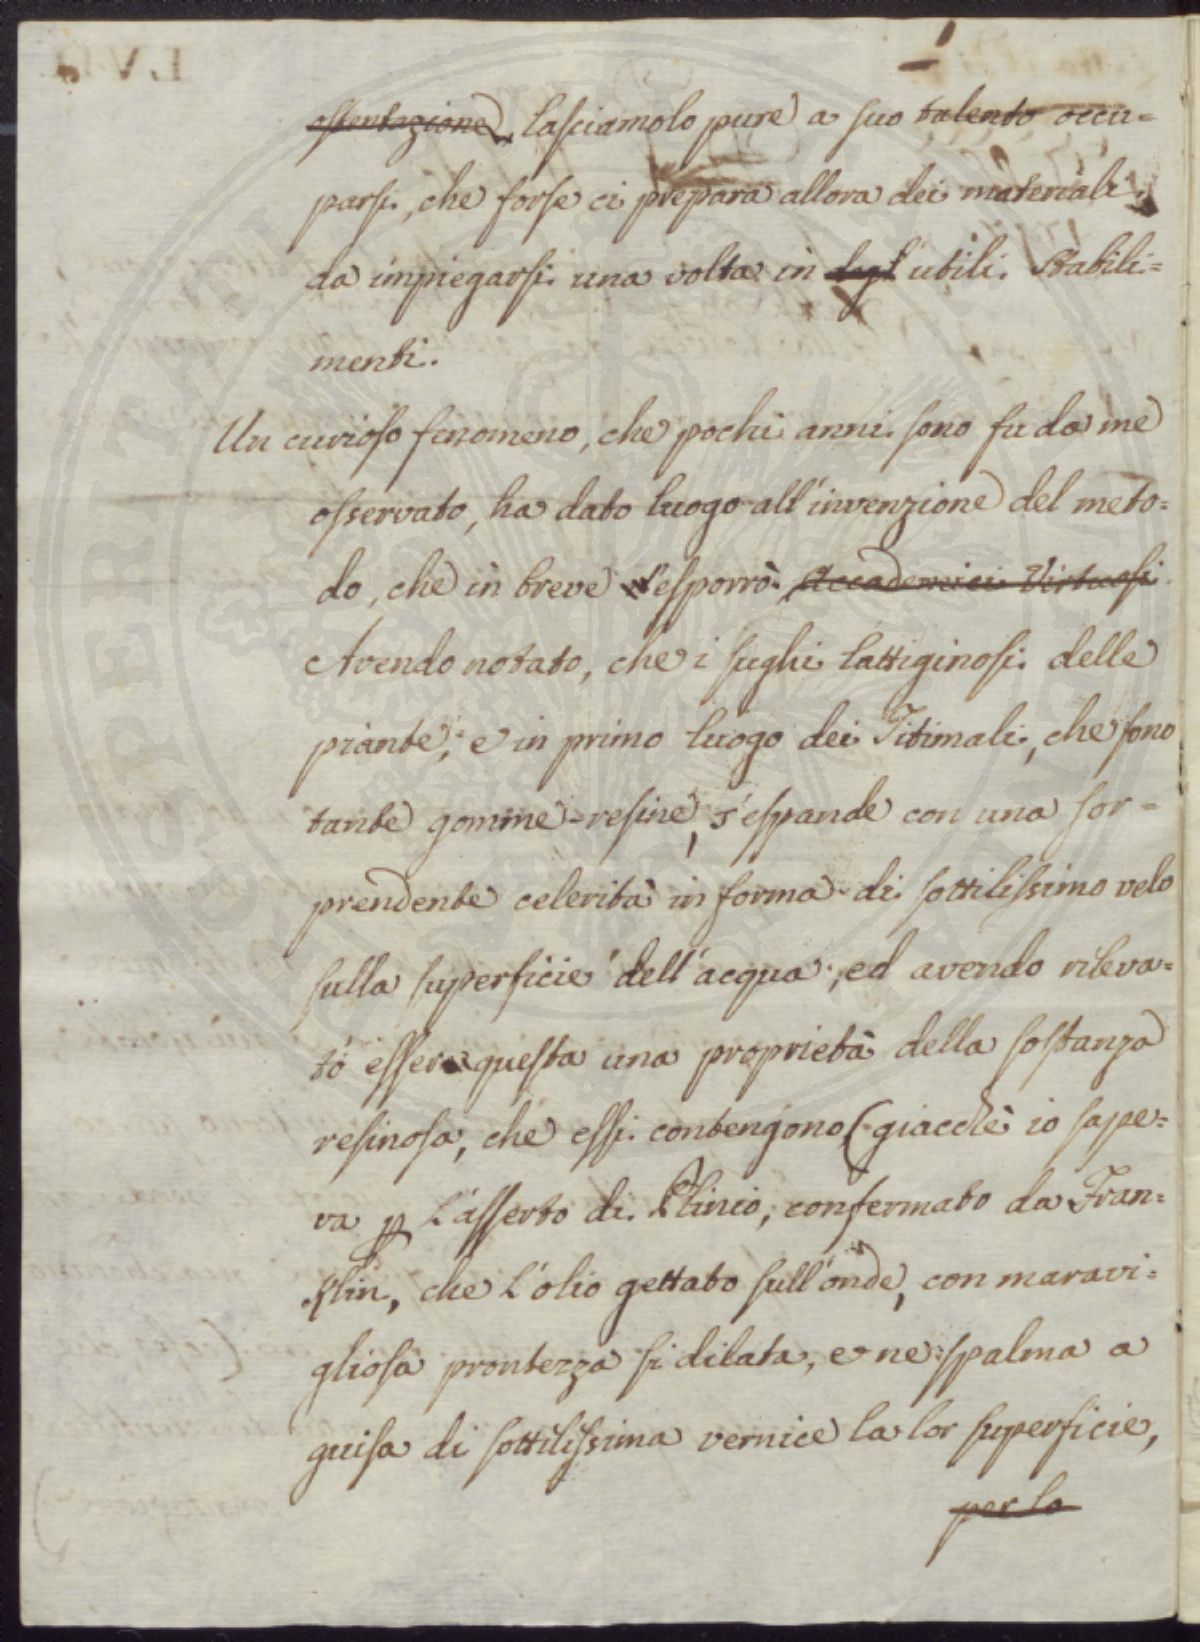 ostentazione, lasciamolo pure a suo talento occu=
parsi, che forse ci prepara allora dei materiali
da impiegarsi una volta in degl' utili Stabili=
menti.
Un curioso fenomeno, che pochi anni sono fu da me
osservato, ha dato luogo all'invenzione del meto=
do, che in breve esporrò Accademici Virtuosi.
Avendo notato, che i sughi lattiginosi delle
piante, e in primo luogo dei Titimali, che sono
tante gomme=resine, s'espande con una sor=
prendente celerità in forma di sottilissimo velo
sulla superficie dell'acqua, ed avendo rileva=
to esser questa una proprietà della sostanza
resinosa, che essi contengono, (giacchè io sape=
va p l'asserto di Plinio, confermato da Fran=
klin, che l'olio gettato sull'onde, con maravi=
gliosa prontezza si dilata, e ne spalma a
guisa di sottilissima vernice la lor superficie,
per la